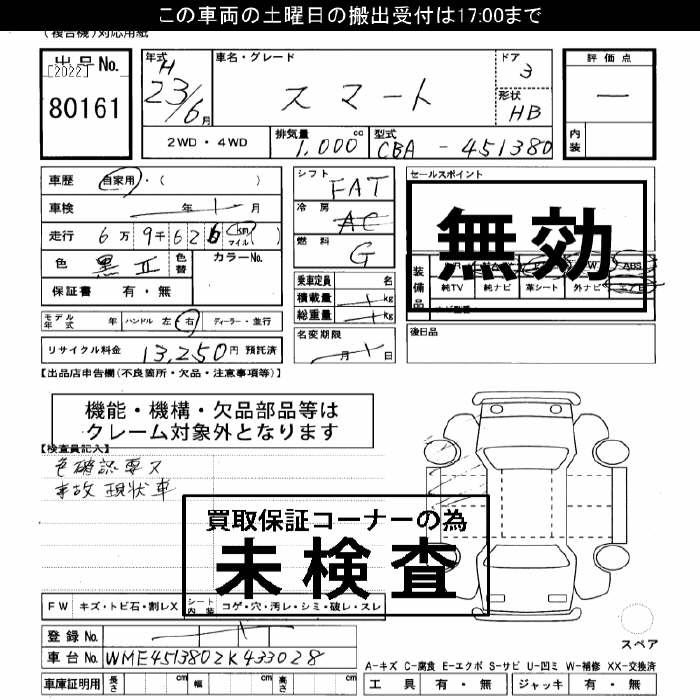 この車両の土曜日の搬出受付は17:00まで
(複合機)対応用紙
出品No. [2022] 80161
年式 H 23/6 月
車名・グレード スマート
ドア 3
形状 HB
評価点 一
内装
2WD・4WD
排気量 1,000 cc
型式 CBA - 451380
車歴 自家用・( )
車検 年 月
走行 6万9千626 km マイル ( )
色 黒II 色替 カラーNo.
保証書 有・無
モデル年式 年 ハンドル 左 右 ディーラー・並行
リサイクル料金 13,250円 預託済
シフト FAT
冷房 AC
燃料 G
乗車定員 名
積載量 kg
総重量 kg
名変期限 月 日
セールスポイント
無効
装備品 ABS
純TV 純ナビ 革シート 外ナビ
後日品
【出品店申告欄(不良箇所・欠品・注意事項等)】
機能・機構・欠品部品等は
クレーム対象外となります
【検査員記入】
色確認要ス
事故 現状車
買取保証コーナーの為
未検査
FW キズ・トビ石・割レX シート内装 コゲ・穴・汚レ・シミ・破レ・スレ
登録No.
車台No. WME4513802K433028
車庫証明用 長さ cm 幅 cm 高さ cm
スペア
A-キズ C-腐食 E-エクボ S-サビ U-凹ミ W-補修 XX-交換済
工具 有・無 ジャッキ 有・無